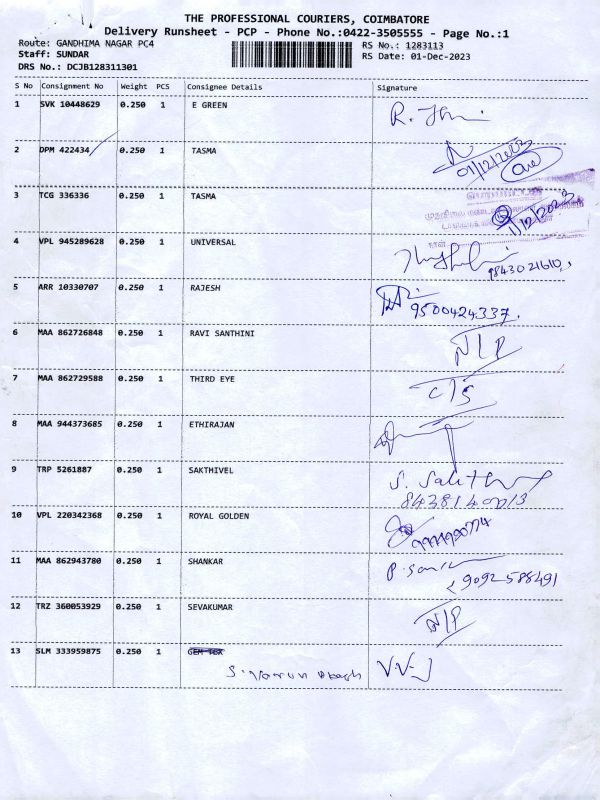 THE PROFESSIONAL COURIERS, COIMBATORE
Delivery Runsheet - PCP - Phone No.:0422-3505555 - Page No.:1
Route: GANDHIMA NAGAR PC4 RS No.: 1283113
Staff: SUNDAR RS Date: 01-Dec-2023
DRS No.: DCJB128311301
S No Consignment No Weight PCS Consignee Details Signature
1 SVK 10448629 0.250 1 E GREEN
2 DPM 422434 0.250 1 TASMA 01/12/2023
3 TCG 336336 0.250 1 TASMA 1/12/2023
4 VPL 945289628 0.250 1 UNIVERSAL 9843021610,
5 ARR 10330707 0.250 1 RAJESH 9500424337.
6 MAA 862726848 0.250 1 RAVI SANTHINI N/P
7 MAA 862729588 0.250 1 THIRD EYE C/S
8 MAA 944373685 0.250 1 ETHIRAJAN
9 TRP 5261887 0.250 1 SAKTHIVEL
10 VPL 220342368 0.250 1 ROYAL GOLDEN
11 MAA 862943780 0.250 1 SHANKAR 9092588491
12 TRZ 360053929 0.250 1 SEVAKUMAR N/P
13 SLM 333959875 0.250 1 GEM TEX V.V.J